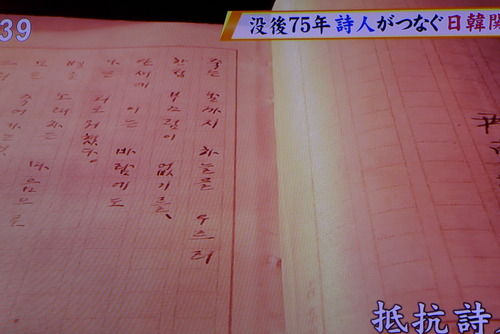 39
没後75年 詩人がつなぐ 日韓
죽는 날까지 하늘을 우르러
한점 부끄럼이 없기를,
잎새에 이는 바람에도
나는 괴로워했다.
별을 노래하는 마음으로
抵抗詩